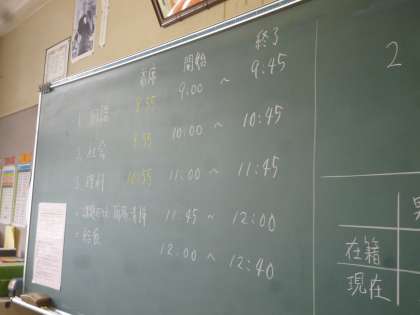 着席 開始 終了
1. 国語 8:55 9:00 ~ 9:45
2. 社会 9:55 10:00 ~ 10:45
3. 理科 10:55 11:00 ~ 11:45
清掃 11:45 ~ 12:00
給食 12:00 ~ 12:40
2
男
在籍
現在